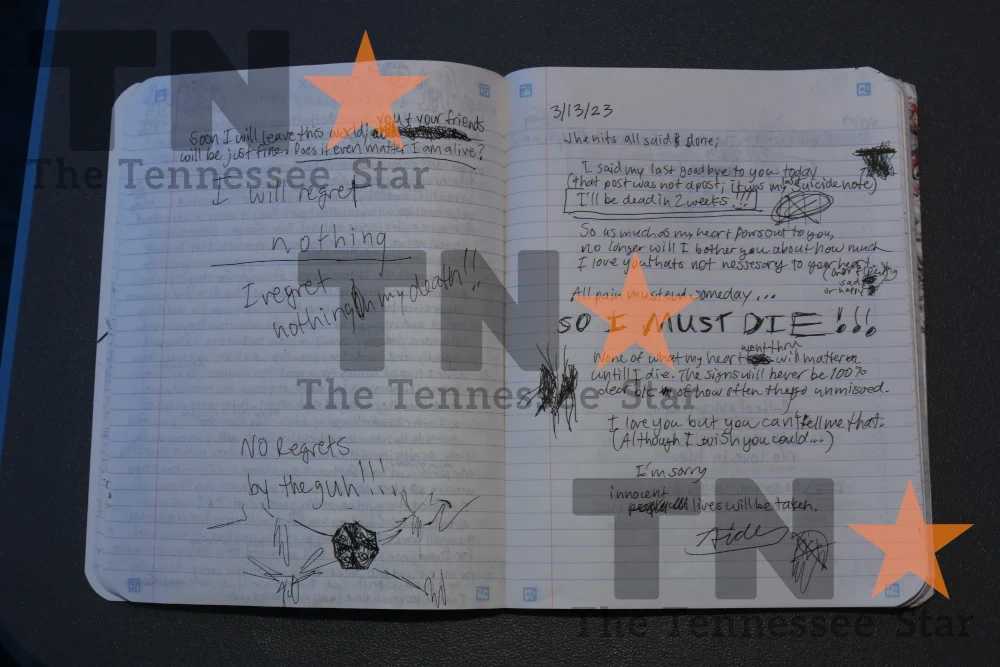 TN
The Tennessee Star
Soon I will leave this world, you & your friends
will be just fine. Does it even matter I am alive?
I will regret
nothing
I regret
nothing in my death!!
NO Regrets
by the gun!!!!
3/13/23
When its all said & done;
I said my last goodbye to you today
(that post was not a post, it was my suicide note)
I'll be dead in 2 weeks!!!
So as much as my heart pours out to you,
no longer will I bother you about how much
I love you thats not nessesory to your heart
sad
All pain must end someday...
SO I MUST DIE!!!
None of what my heart went thru will matter
untill I die. The signs will never be 100%
clear b/c of how often unmissed.
I love you but you can't tell me that.
(Although I wish you could...)
I'm sorry
innocent lives will be taken.
TN
The Tennessee Star
TN
The Tennessee Star